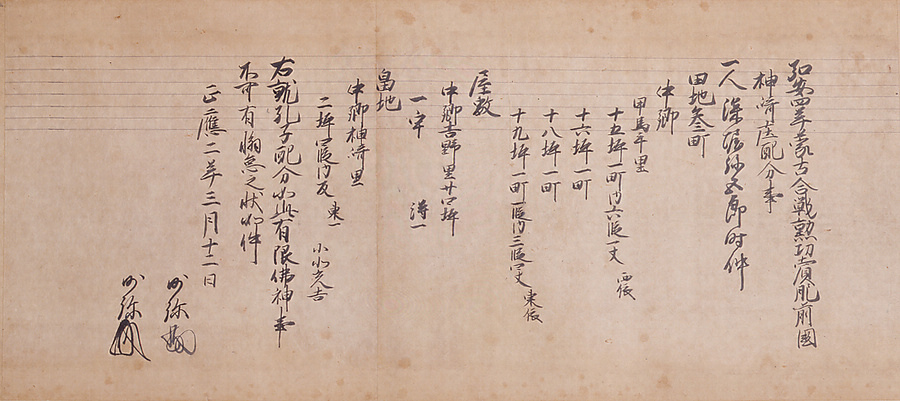 弘安四年蒙古合戦勲功賞肥前國
神崎庄配分事
一人 深堀弥五郎時仲
田地参町
中郷
甲馬牟里
十五坪一町内六段一丈 西依
十六坪一町
十八坪一町
十九坪一町一段内三段四丈 東依
屋敷
中郷吉野里廿一坪
一宇
畠地
中郷神崎里
二坪四段内五反 東一
右就孔子配分如此有限佛神事
不可有懈怠之状如件
正應二年三月十二日
沙弥
沙弥